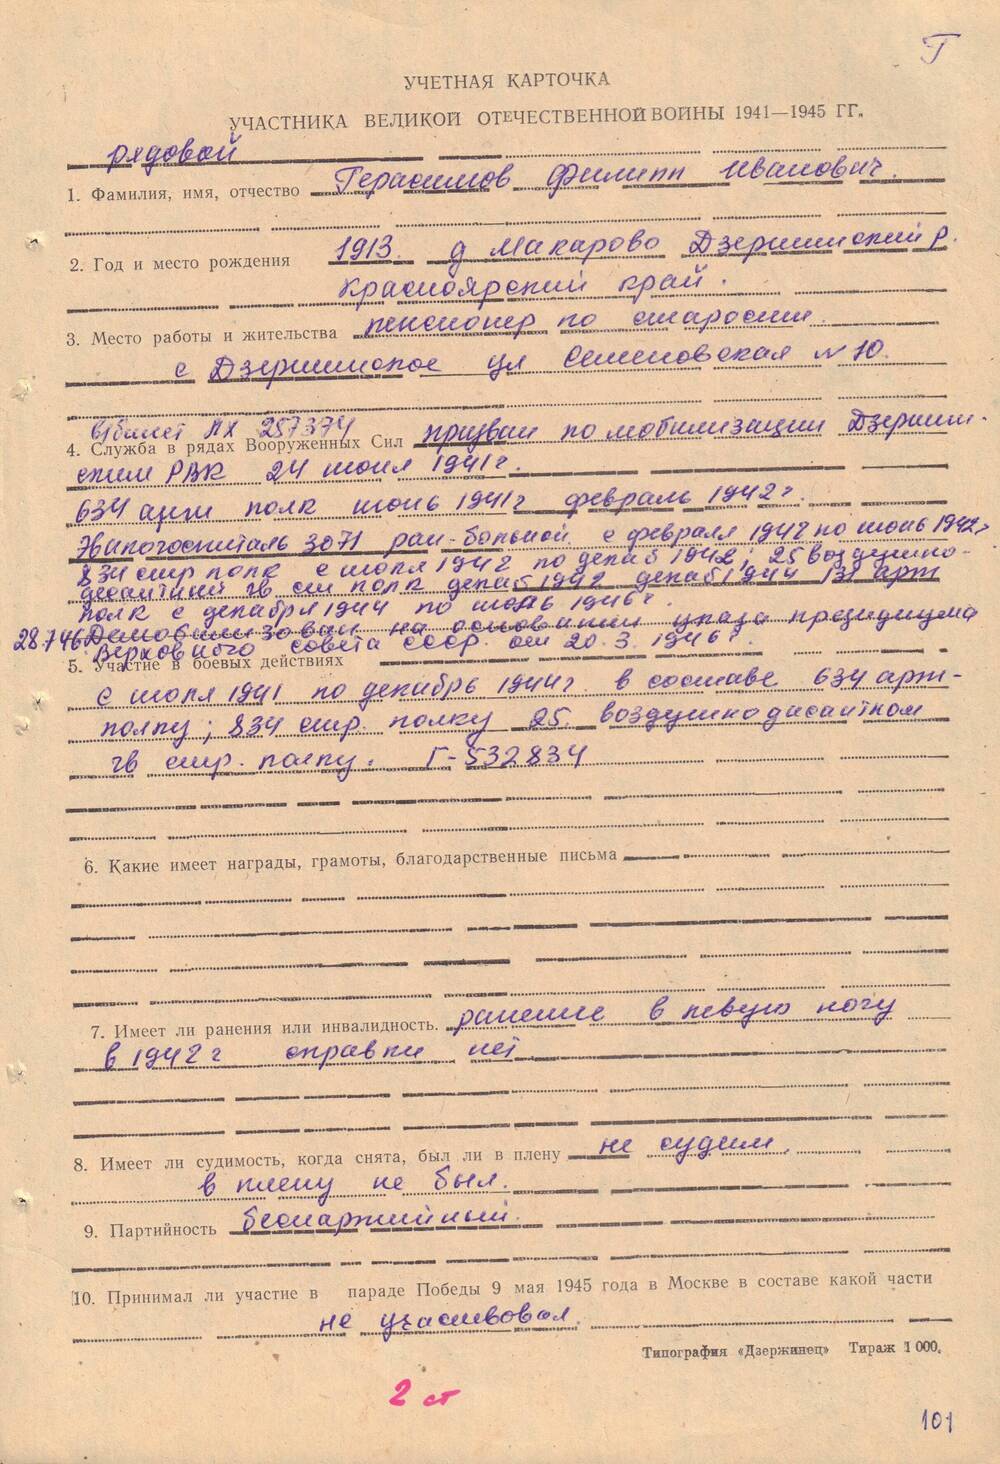 Г
УЧЕТНАЯ КАРТОЧКА
УЧАСТНИКА ВЕЛИКОЙ ОТЕЧЕСТВЕННОЙ ВОЙНЫ 1941—1945 ГГ.
рядовой
1. Фамилия, имя, отчество Герасимов Филипп Иванович.
2. Год и место рождения 1913. д Макарово Дзержинский р.
Красноярский край.
3. Место работы и жительства пенсионер по старости.
с Дзержинское ул Семеновская № 10.
в/билет НХ 287374
4. Служба в рядах Вооруженных Сил призван по мобилизации Дзержин-
ским РВК 24 июля 1941г.
634 арт полк июль 1941г февраль 1942г.
Эвакогоспиталь 3071 ран-больной с февраля 1942 по июнь 1942г
834 стр полк с июля 1942 по декаб 1942; 25 воздушно-
десантный гв стр полк декаб 1942 декаб 1944 131 арт
полк с декабря 1944 по июнь 1946г.
28.7.46 Демобилизован на основании указа президиума
Верховного совета СССР. от 20.3.1946г.
5. Участие в боевых действиях
с июля 1941 по декабрь 1944г. в составе 634 арт-
полку; 834 стр. полку 25. воздушнодесантном
гв стр. полку. Г-532834
6. Какие имеет награды, грамоты, благодарственные письма
7. Имеет ли ранения или инвалидность. ранение в левую ногу
в 1942г справки нет
8. Имеет ли судимость, когда снята, был ли в плену не судим,
в плену не был.
9. Партийность беспартийный.
10. Принимал ли участие в параде Победы 9 мая 1945 года в Москве в составе какой части
не участвовал.
Типография «Дзержинец» Тираж 1 000.
2 ст
101